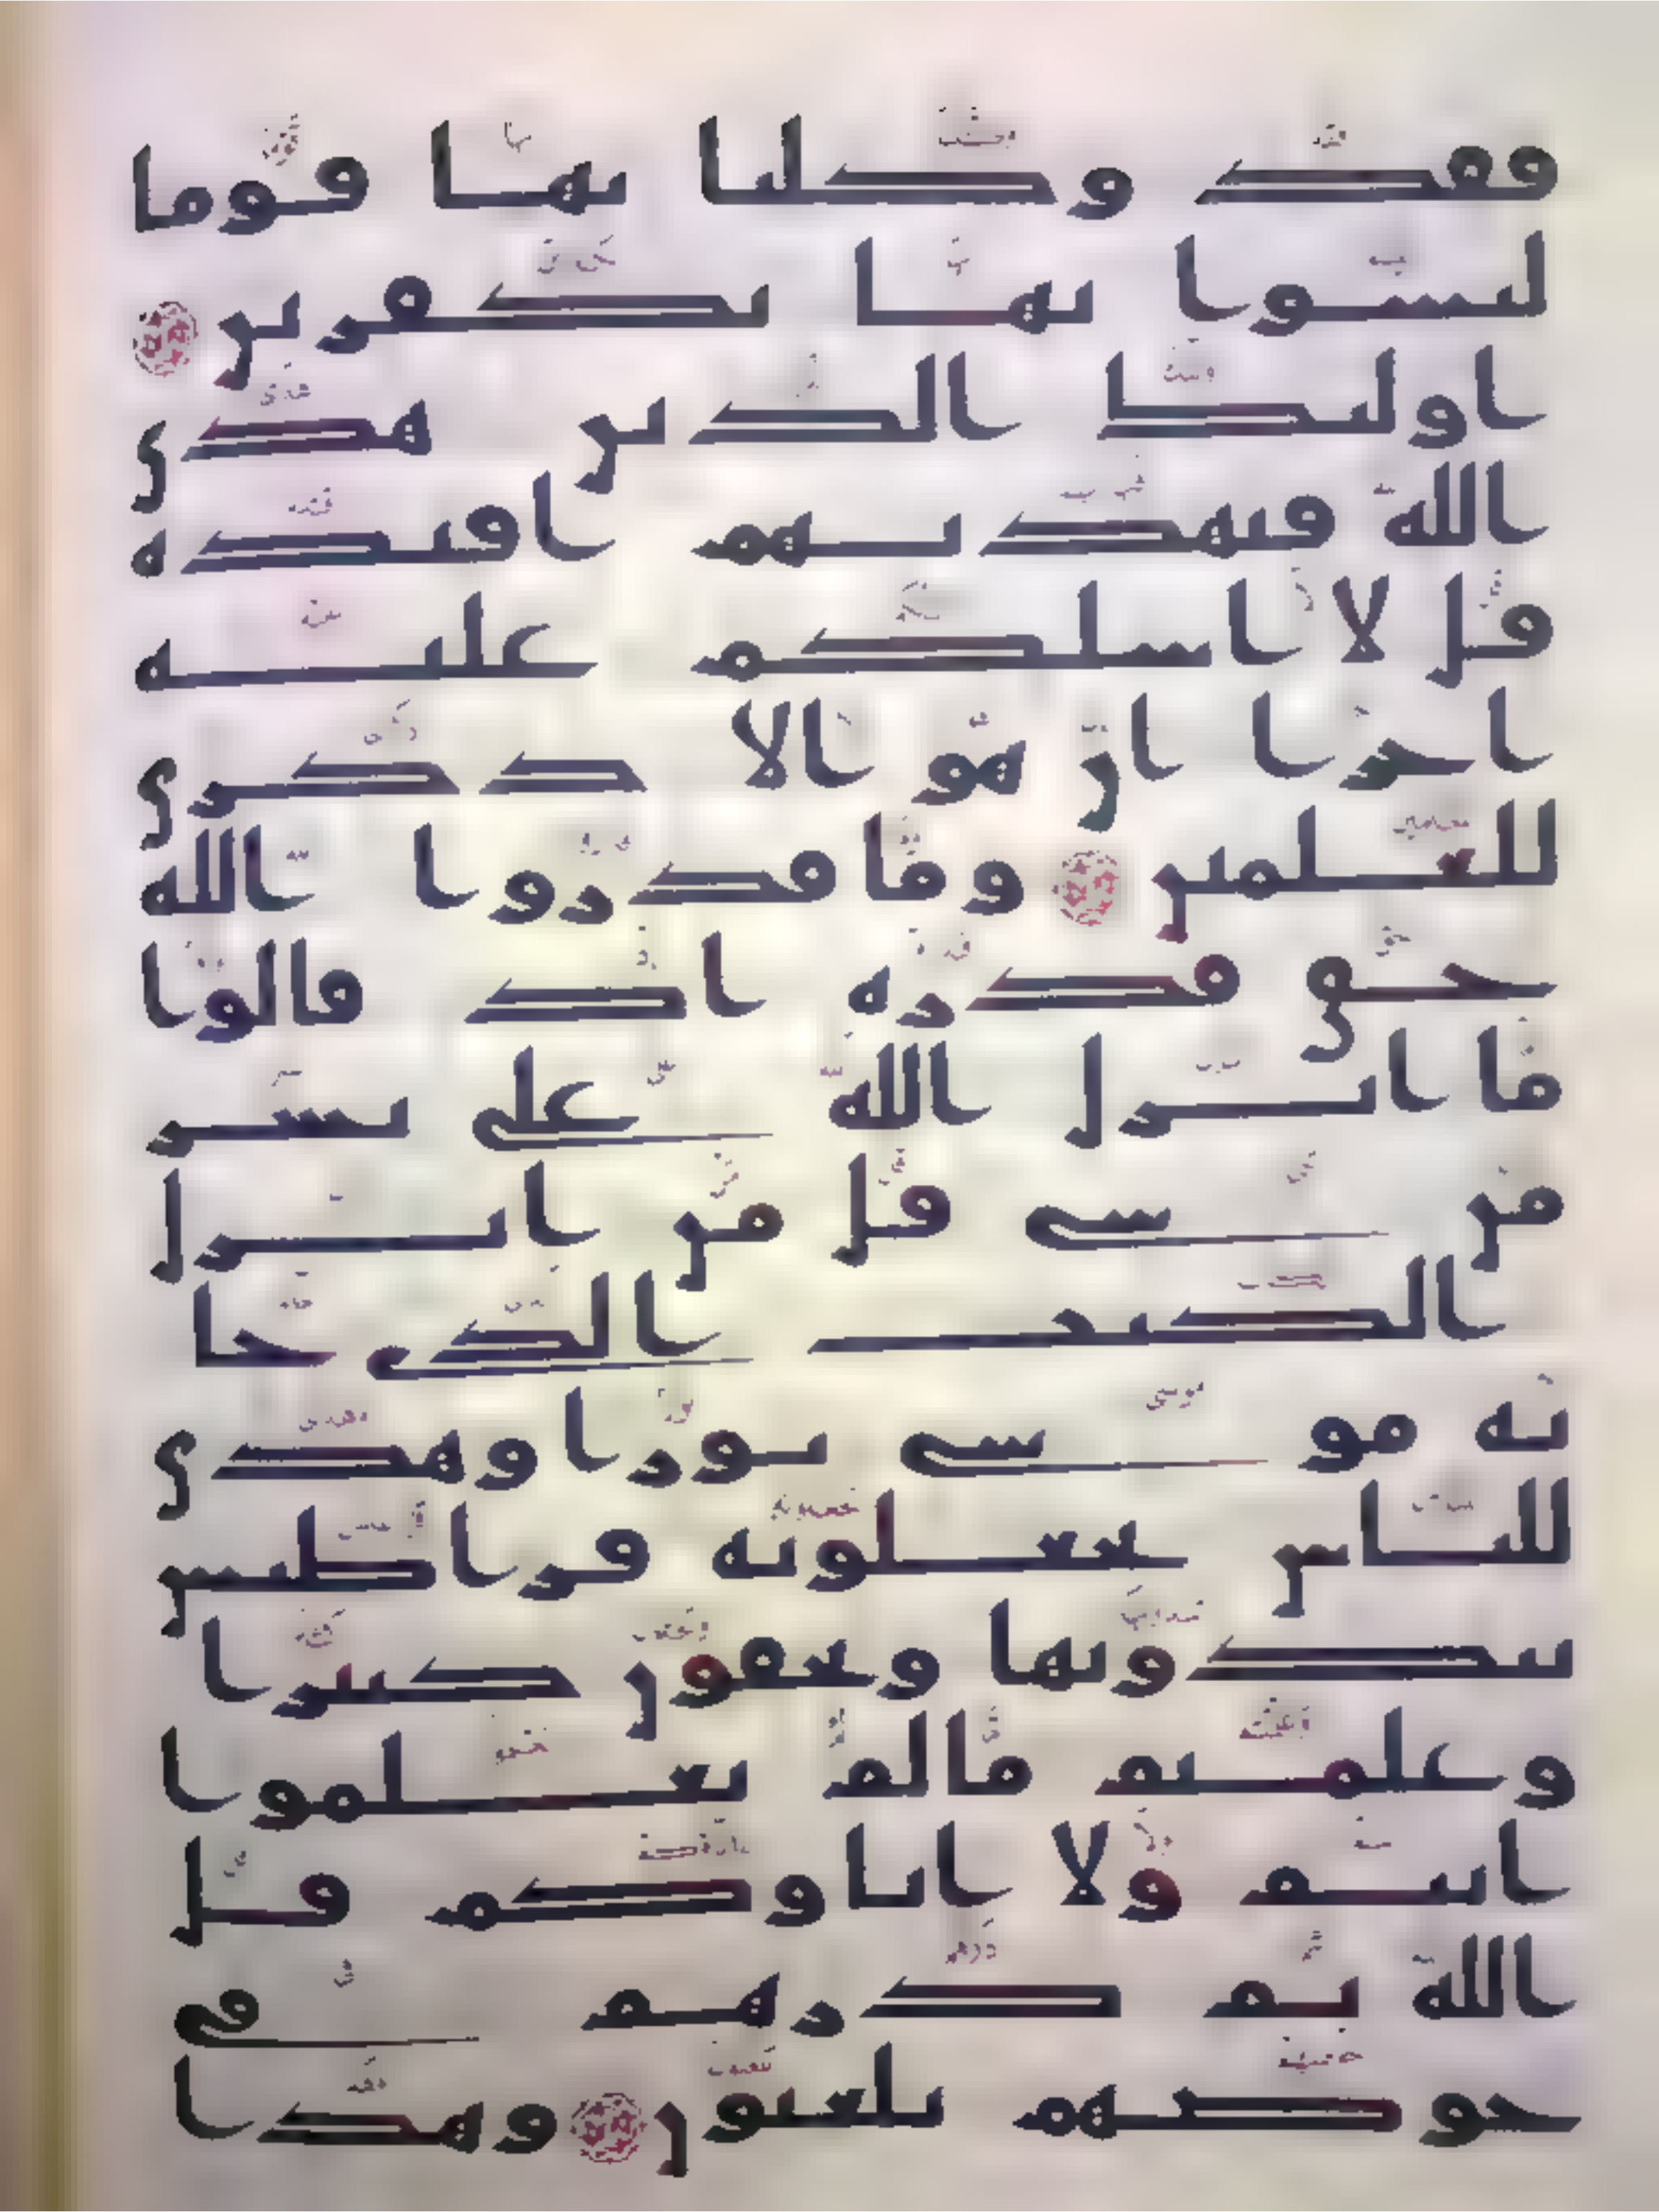 فقد وكلنا بها قوما
ليسوا بها بكفرين
اوليك الذين هدى
الله فبهديهم اقتده
قل لا اسلكم عليه
اجرا ان هو الا ذكرى
للعلمين وما قدروا الله
حق قدره اذ قالوا
ما انزل الله على بشر
من شي قل من انزل
الكتب الذي جا
به موسى نورا وهدى
للناس تجعلونه قراطيس
تبدونها وتخفون كثيرا
وعلمتم ما لم تعلموا
انتم ولا اباوكم قل
الله ثم ذرهم في
خوضهم يلعبون وهذا